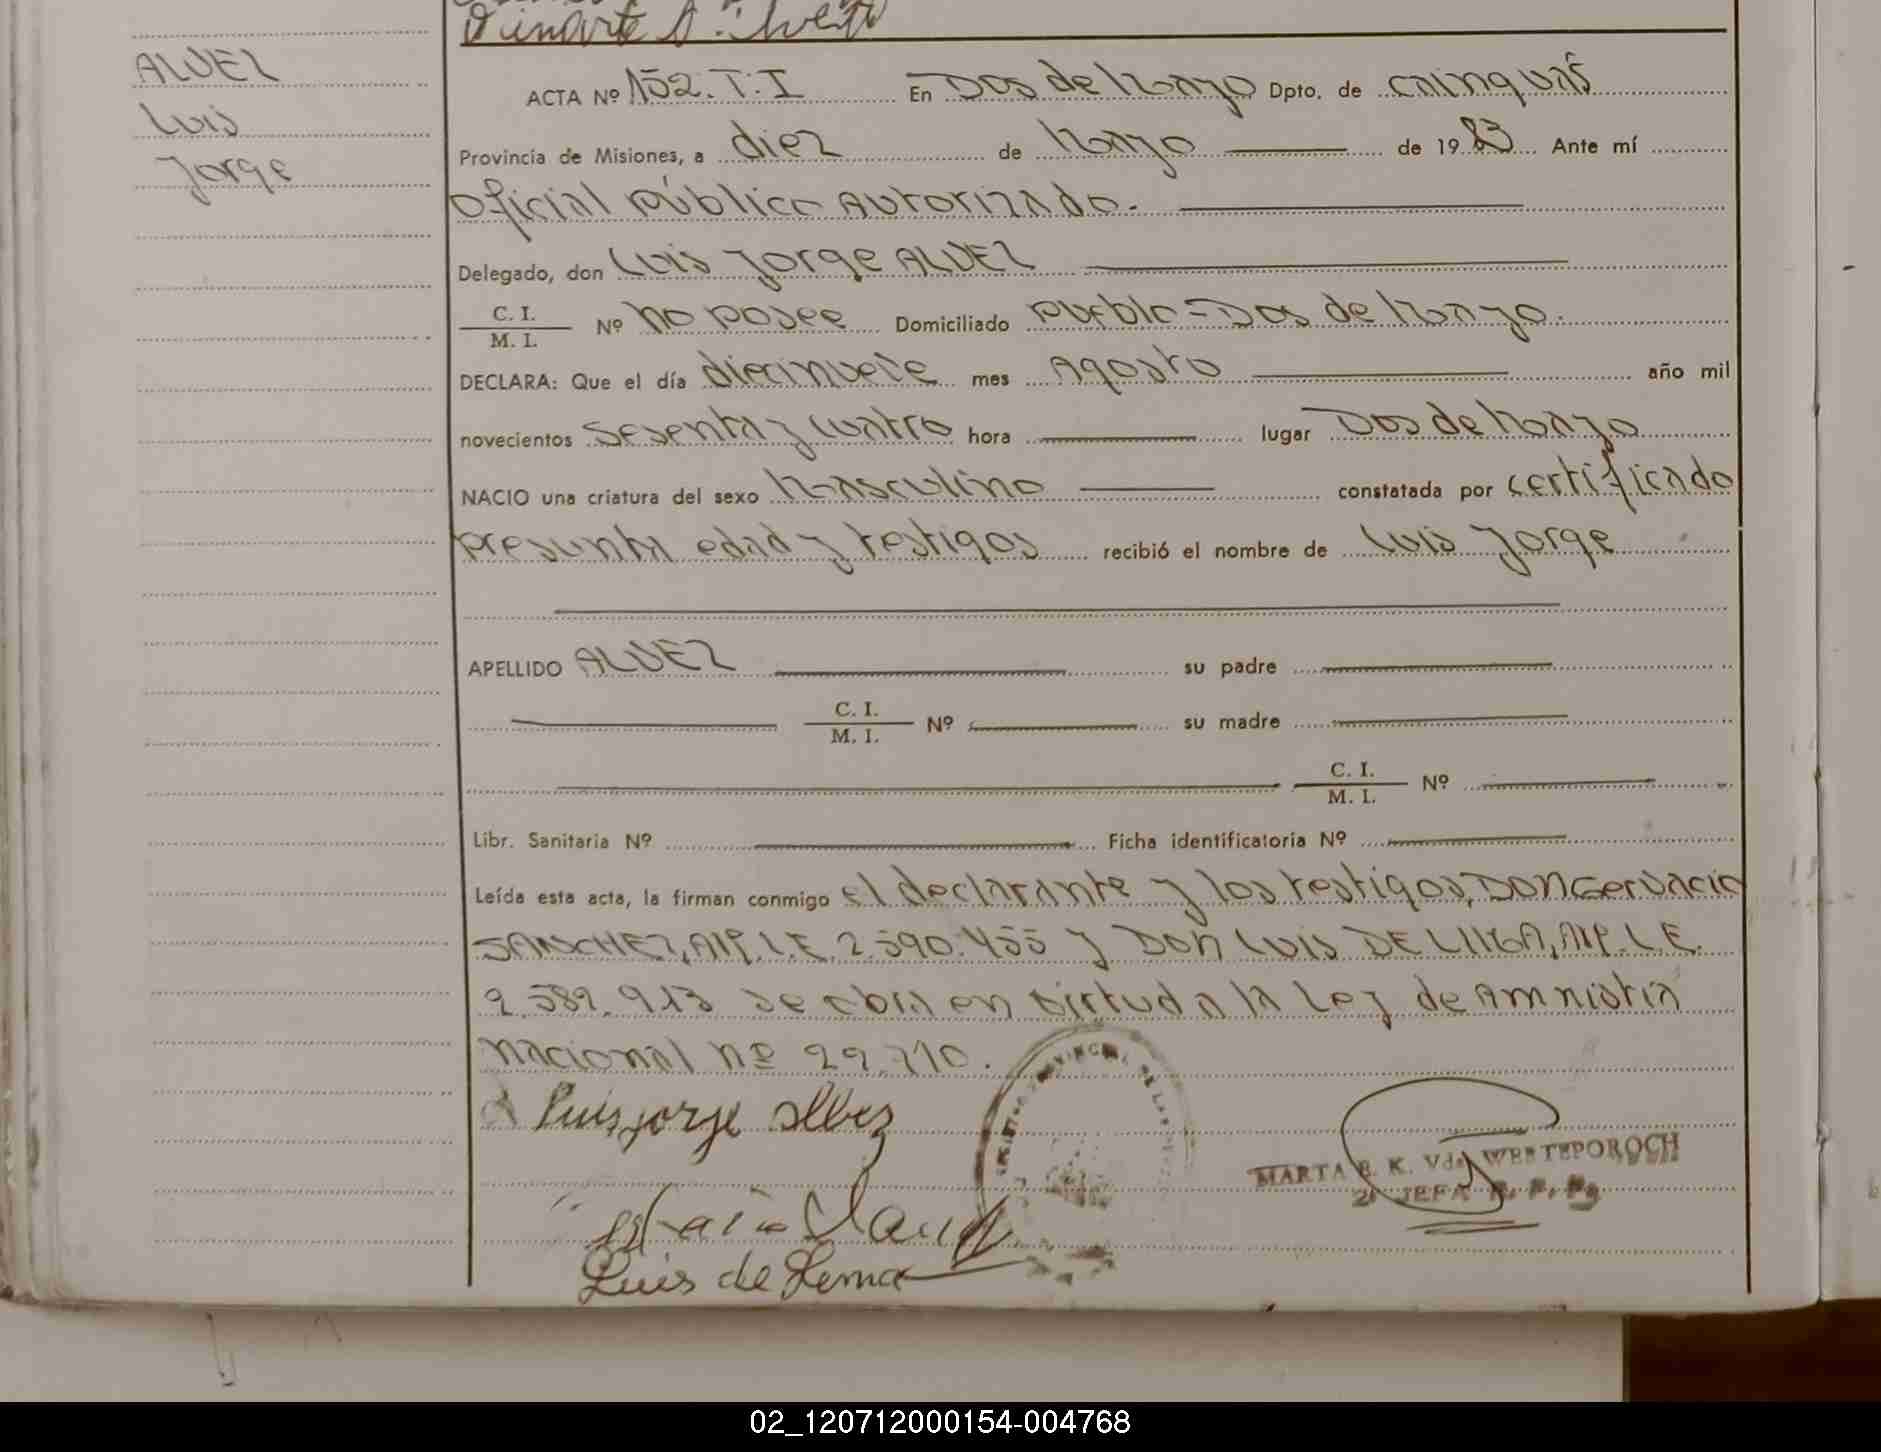 ALVEZ
Luis
Jorge
ACTA Nº 152. T. I En Dos de Mayo Dpto. de Cainguás
Provincia de Misiones, a diez de Mayo de 1983 Ante mí
Oficial Público Autorizado.
Delegado, don Luis Jorge ALVEZ
C. I.
M. I. Nº no posee Domiciliado Pueblo - Dos de Mayo.
DECLARA: Que el día diecinueve mes Agosto año mil
novecientos sesenta y cuatro hora lugar Dos de Mayo
NACIO una criatura del sexo Masculino constatada por certificado
presunta edad y testigos recibió el nombre de Luis Jorge
APELLIDO ALVEZ su padre
C. I.
M. I. Nº su madre
C. I.
M. I. Nº
Libr. Sanitaria Nº Ficha identificatoria Nº
Leída esta acta, la firman conmigo el declarante y los testigos, Don Gervacio
SANCHEZ, M.I.P. L.E. 2.590.455 y Don Luis DE LIMA, M.I.P. L.E.
2.582.913 se obra en virtud a la Ley de Amnistia
Nacional nº 22.710.
Luis jorge Albez
Luis de Lema
MARTA R. K. Vda WESTEPOROCH
JEFA
02_120712000154-004768